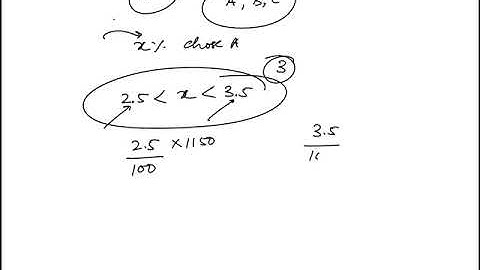 A, B, C
x% chose A
3
2.5 < x < 3.5
2.5/100 × 1150
3.5/1